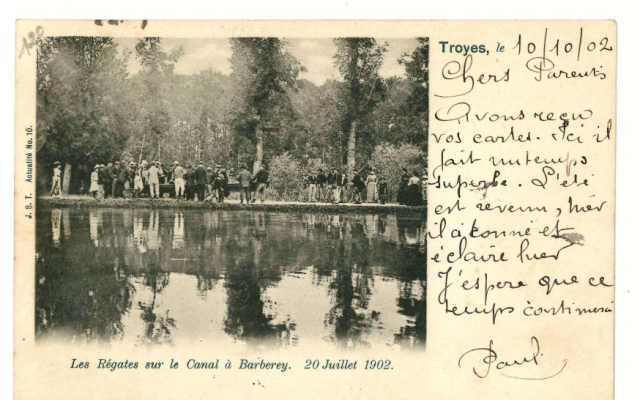 120
Troyes, le 10/10/02
Chers Parents
Avons reçu
vos cartes. Ici il
fait un temps
superbe. L'été
est revenu, hier
il a tonné et
éclairé hier
J'espère que ce
temps continuera
Paul
J. S. T. Actualité No. 10.
Les Régates sur le Canal à Barberey. 20 Juillet 1902.